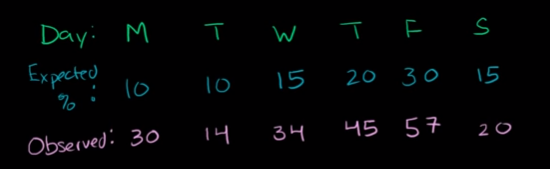 Day: M T W T F S
Expected % : 10 10 15 20 30 15
Observed: 30 14 34 45 57 20